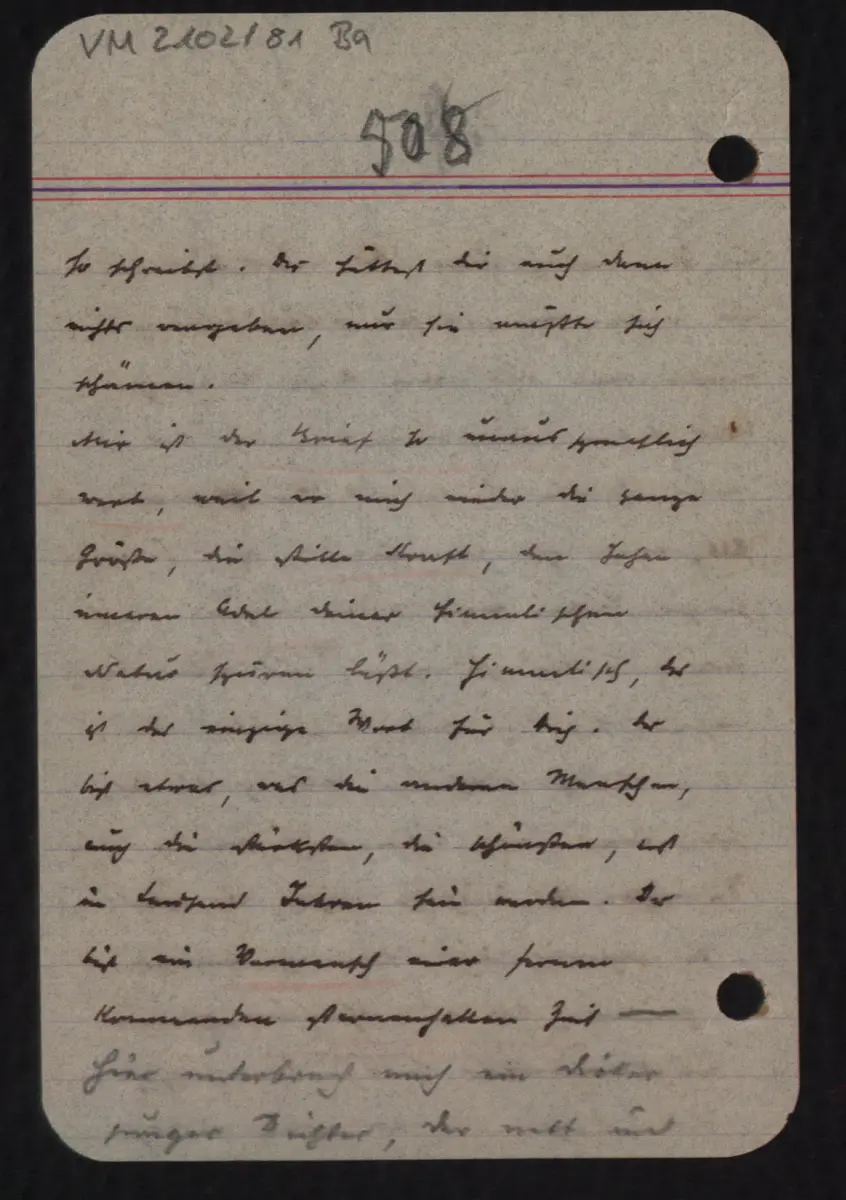 VM 2102/81 Ba
508
so schreibst. Du hättest dir auch dann
nichts vergeben, nur sie müßte sich
schämen.
Mir ist der Brief so unaussprechlich
wert, weil er mich wieder die ganze
Größe, die stille Kraft, den hohen
inneren Adel deiner himmlischen
Natur spüren läßt. Himmlisch, das
ist das einzige Wort für dich. Du
bist etwas, was die anderen Menschen,
auch die stärksten, die schönsten, erst
in tausend Jahren sein werden. Du
bist ein Vormensch einer fernen
kommenden sternenhellen Zeit —
Hier unterbrach mich ein
junger Dichter, der nett und